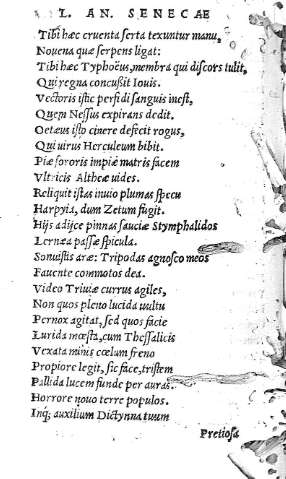 L. AN. SENECAE
Tibi hæc cruenta serta texuntur manu,
Nouena quæ serpens ligat:
Tibi hæc Typhoëus, membra qui discors tulit,
Qui regna concußit Iouis.
Vectoris istic perfidi sanguis inest,
Quem Nessus expirans dedit.
Oetæus isto cinere defecit rogus,
Qui uirus Herculeum bibit.
Piæ sororis impiæ matris facem
Vltricis Altheæ uides.
Reliquit istas inuio plumas specu
Harpyia, dum Zetum fugit.
Hijs adijce pinnas sauciæ Stymphalidos
Lernæa passæ spicula.
Sonuistis aræ: Tripodas agnosco meos
Fauente commotos dea.
Video Triuiæ currus agiles,
Non quos pleno lucida uultu
Pernox agitat, sed quos facie
Lurida mœsta, cum Thessalicis
Vexata minis cœlum freno
Propiore legit, sic face, tristem
Pallida lucem funde per auras.
Horrore nouo terre populos.
Inq; auxilium Dictynna tuum
Pretiosa